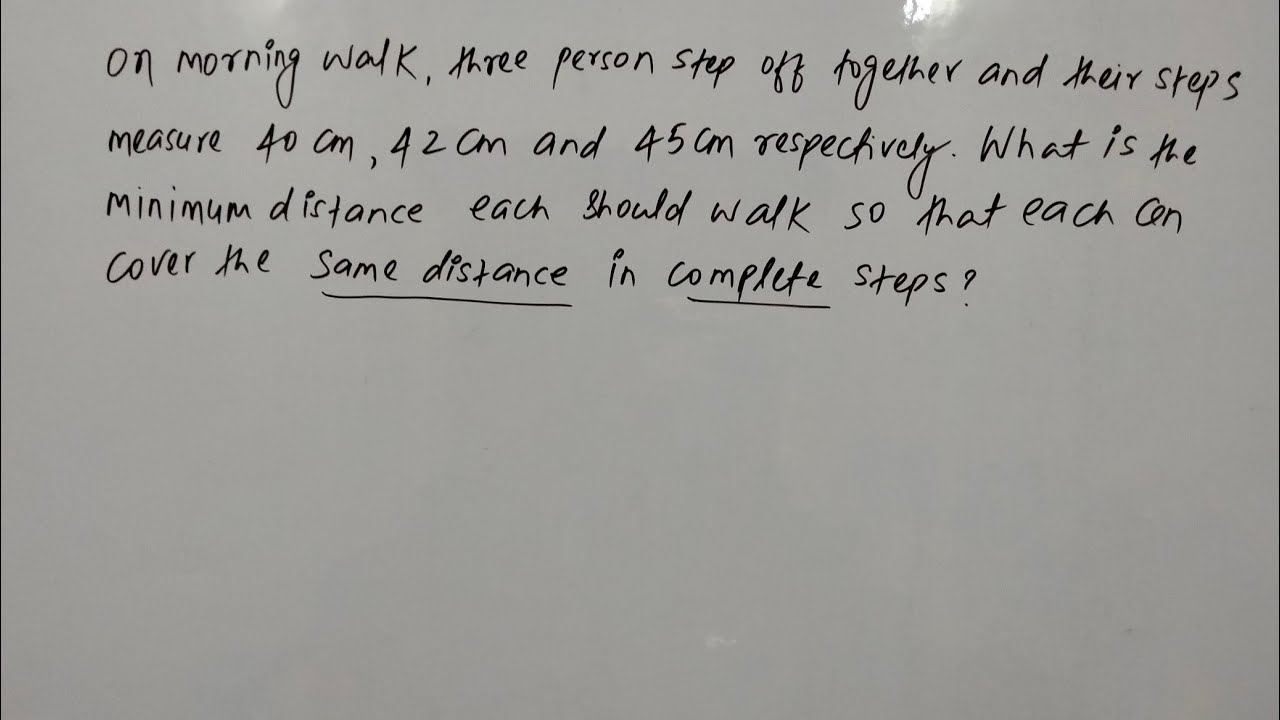 on morning walk, three person step off together and their steps
measure 40 cm, 42 cm and 45 cm respectively. What is the
minimum distance each should walk so that each can
cover the same distance in complete steps?